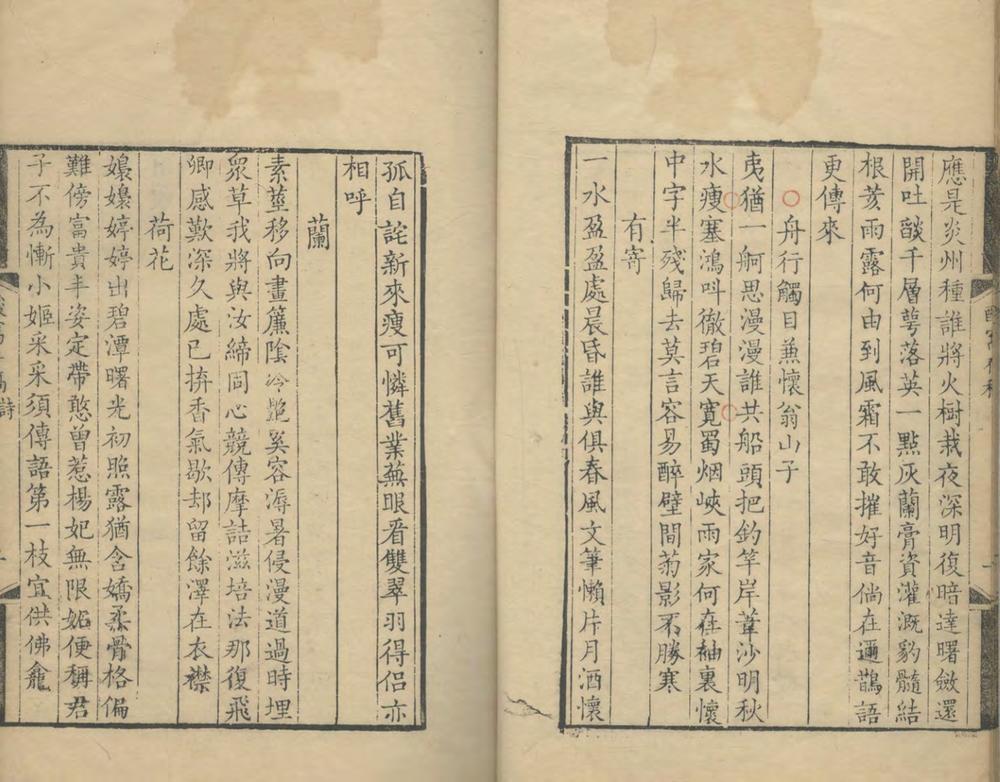 應是炎州種誰將火樹栽夜深明復暗達曙斂還
開吐燄千層萼落英一點灰蘭膏資灌溉豹髓結
根荄雨露何由到風霜不敢摧好音倘在邇鵲語
更傳來
舟行觸目兼懷翁山子
夷猶一舸思漫漫誰共船頭把釣竿岸葦沙明秋
水瘦塞鴻呌徹碧天寬蜀烟峽雨家何在袖裏懷
中字半殘歸去莫言容易醉壁間菊影不勝寒
有寄
一水盈盈處晨昏誰與俱春風文筆懶片月酒懷
孤自詫新來瘦可憐舊業蕪眼看雙翠羽得侶亦
相呼
蘭
素莖移向畫簾陰冷艶奚容溽暑侵漫道過時埋
衆草我將與汝締同心競傳摩詰滋培法那復飛
卿感歎深久處已拚香氣歇却留餘澤在衣襟
荷花
嬝嬝婷婷出碧潭曙光初照露猶含嬌柔骨格偏
難傍富貴丰姿定帶憨曾惹楊妃無限妬便稱君
子不為慚小嫗采采須傳語第一枝宜供佛龕